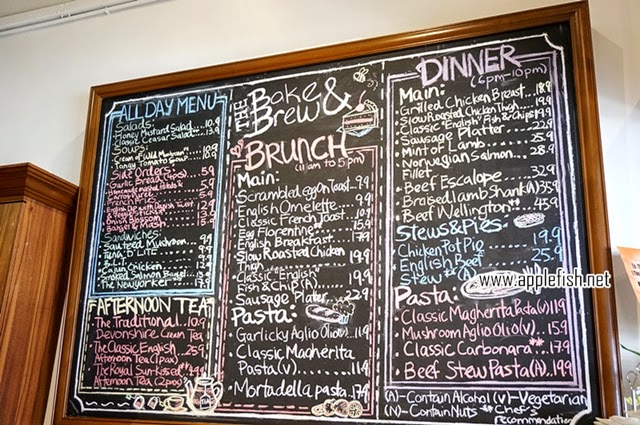 ALL DAY MENU
Salads:
Honey Mustard Salad 10.9
Classic Ceasar Salad 13.9
Soups:
Cream of Wild Mushroom
Tangy Tomato Soup
Side Orders:
Garlic Bread
French Fries
Onion Blossom
Banger & Mash
Sandwiches:
Sauteed Mushroom 9.9
Tuna D'LITE
B.L.T
Cajun Chicken
Smoked Salmon Bagel
The Newyorker
AFTERNOON TEA
The Traditional 10.9
Devonshire Cream Tea
The Classic English 25.9
Afternoon Tea (1pax)
The Royal Sun-kissed
Afternoon Tea (2pax)
THE Bake & Brew
BRUNCH
(11am to 5pm)
Main:
Scrambled egg On Toast 9.9
English Omelette
Classic French Toast 10.9
Egg Florentine 15.9
English Breakfast 17.9
Slow Roasted Chicken
Thigh
Classic English
Fish & Chip (A)
Sausage Plater 22.9
Pasta:
Garlicky Aglio Olio (v) 11.9
Classic Magherita
Pasta (v) 11.9
Mortadella pasta 17.9
DINNER
(6pm-10pm)
Main:
Grilled Chicken Breast 18.9
Slow Roasted Chicken Thigh 19.9
Classic "English" Fish & Chips 19.9
Sausage Platter 22.9
Mint of Lamb 25.9
Norwegian Salmon 28.9
Fillet
Beef Escalape 32.9
Braised Lamb Shank (A) 35.9
Beef Wellington 45.9
Stews & Pies:
Chicken Pot Pig 19.9
English Beef 25.9
Stew **(A)
www.applefish.net
Pasta:
Classic Magherita Pasta (v) 11.9
Mushroom Aglio Olio (v) 15.9
Classic Carbonara ** 17.9
Beef Stew Pasta (A) 19.9
(A)-Contain Alcohol (v)-Vegetarian
(N)-Contain Nuts ** Chef's
recommendation